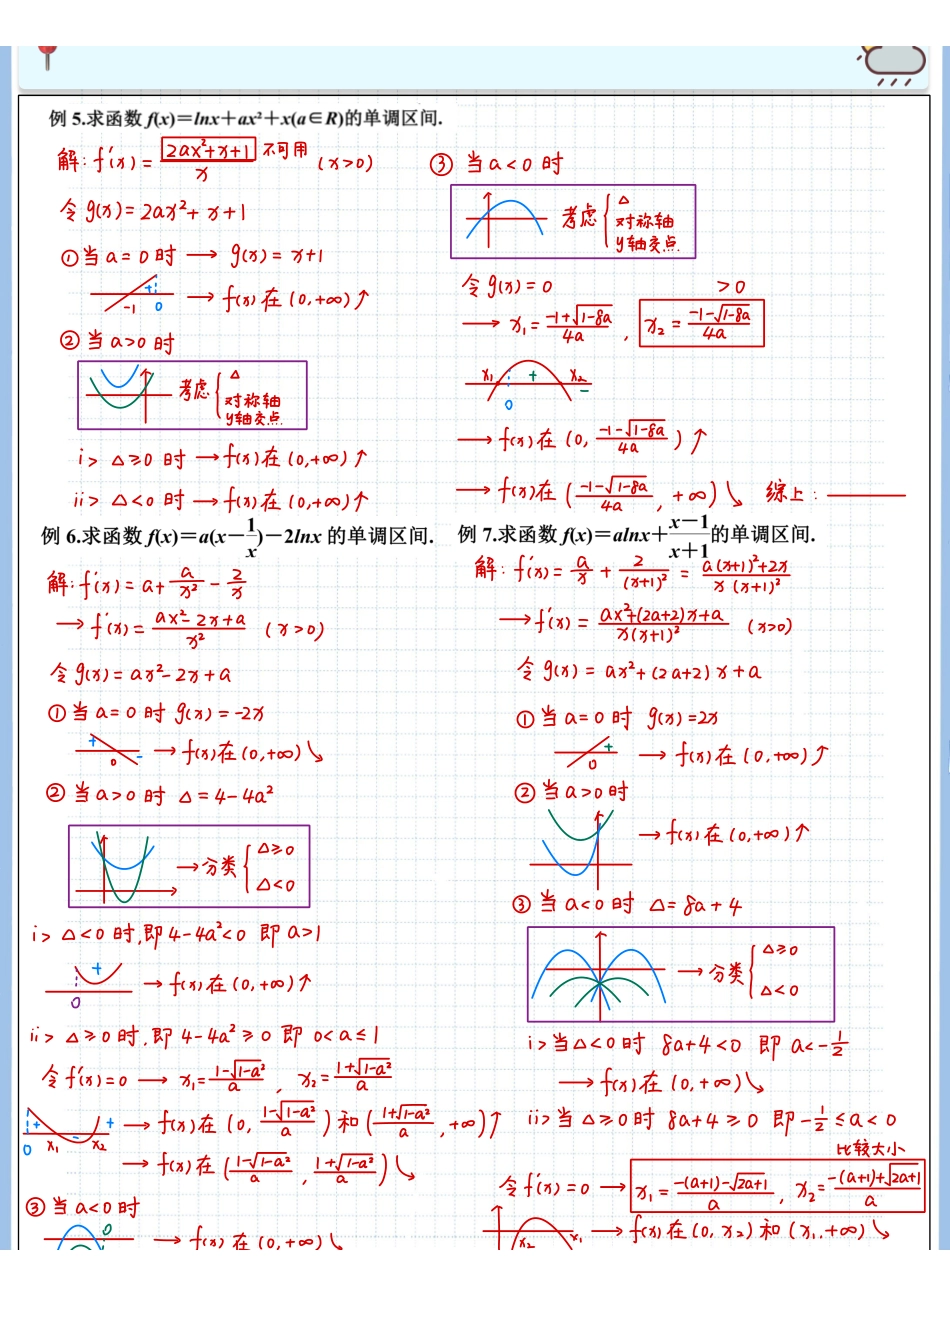 例 5.求函数 f(x)=lnx+ax²+x(a∈R)的单调区间.
解: f'(x) = (2ax²+x+1)/x 不可用 (x>0)
令 g(x) = 2ax²+x+1
① 当 a=0 时 → g(x) = x+1
+ -1 0 → f(x) 在 (0,+∞) ↑
② 当 a>0 时
考虑 { △
对称轴
y轴交点
i> △≥0 时 → f(x) 在 (0,+∞) ↑
ii> △<0 时 → f(x) 在 (0,+∞) ↑
③ 当 a<0 时
考虑 { △
对称轴
y轴交点
令 g(x) = 0 >0
→ x₁ = (-1+√(1-8a))/4a , x₂ = (-1-√(1-8a))/4a
x₁ + x₂ - 0
→ f(x) 在 (0, (-1-√(1-8a))/4a ) ↑
→ f(x) 在 ( (-1-√(1-8a))/4a , +∞) ↘ 综上: ——
例 6.求函数 f(x)=a(x-1/x)-2lnx 的单调区间.
解: f'(x) = a + a/x² - 2/x
→ f'(x) = (ax²-2x+a)/x² (x>0)
令 g(x) = ax²-2x+a
① 当 a=0 时 g(x) = -2x
+ 0 - → f(x) 在 (0,+∞) ↘
② 当 a>0 时 △ = 4-4a²
→ 分类 { △≥0
△<0
i> △<0 时, 即 4-4a²<0 即 a>1
+ 0 → f(x) 在 (0,+∞) ↑
ii> △≥0 时, 即 4-4a²≥0 即 0<a≤1
令 f'(x)=0 → x₁ = (1-√(1-a²))/a , x₂ = (1+√(1-a²))/a
+ - + 0 x₁ x₂ → f(x) 在 (0, (1-√(1-a²))/a ) 和 ( (1+√(1-a²))/a , +∞) ↑
→ f(x) 在 ( (1-√(1-a²))/a , (1+√(1-a²))/a ) ↘
③ 当 a<0 时
0 → f(x) 在 (0,+∞) ↘
例 7.求函数 f(x)=alnx+(x-1)/(x+1)的单调区间.
解: f'(x) = a/x + 2/(x+1)² = (a(x+1)²+2x)/(x(x+1)²)
→ f'(x) = (ax²+(2a+2)x+a)/(x(x+1)²) (x>0)
令 g(x) = ax²+(2a+2)x+a
① 当 a=0 时 g(x) = 2x
+ 0 → f(x) 在 (0,+∞) ↑
② 当 a>0 时
→ f(x) 在 (0,+∞) ↑
③ 当 a<0 时 △ = 8a+4
→ 分类 { △≥0
△<0
i> 当 △<0 时 8a+4<0 即 a<-1/2
→ f(x) 在 (0,+∞) ↘
ii> 当 △≥0 时 8a+4≥0 即 -1/2≤a<0
比较大小
令 f'(x)=0 → x₁ = (-(a+1)-√(2a+1))/a , x₂ = (-(a+1)+√(2a+1))/a
x₂ x₁ → f(x) 在 (0, x₂) 和 (x₁,+∞) ↘